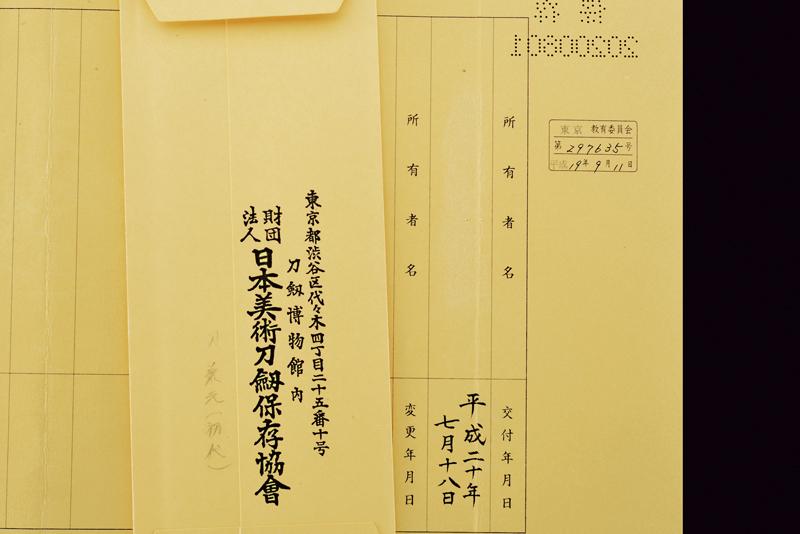 東京 教育委員会
第297635号
平成19年9月11日
所有者名
交付年月日
平成二十年
七月十八日
所有者名
変更年月日
東京都渋谷区代々木四丁目二十五番十号
刀劔博物館内
財団
法人
日本美術刀劔保存協會
刀 兼元(初代)